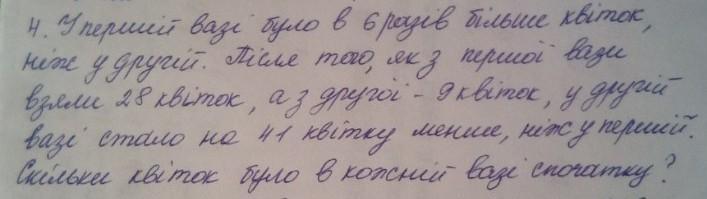 4. У першій вазі було в 6 разів більше квіток,
ніж у другій. Після того, як з першої вази
взяли 28 квіток, а з другої - 9 квіток, у другій
вазі стало на 41 квітку менше, ніж у першій.
Скільки квіток було в кожній вазі спочатку?